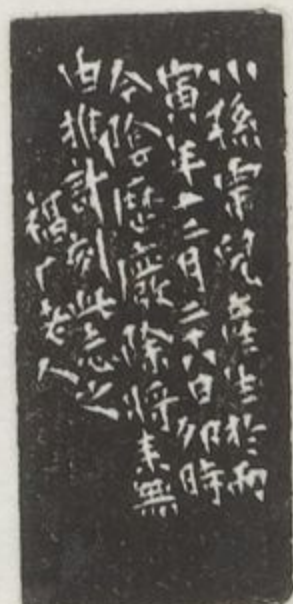 小孫甯兒產生於丙
寅年十二月二十八日卯時
今陰歷廢除將來無
由推計刻此志之
福厂老人